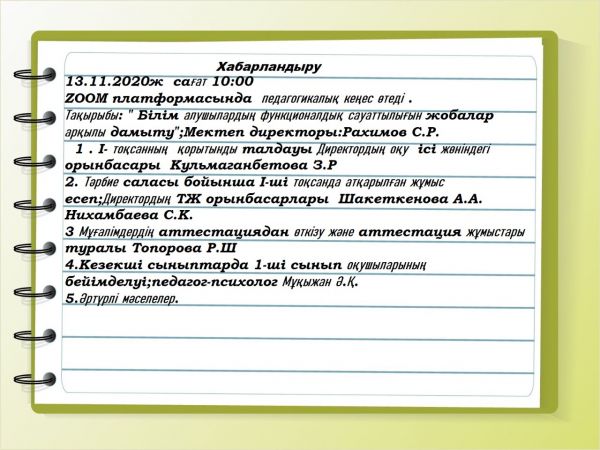 Хабарландыру
13.11.2020ж сағат 10:00
ZOOM платформасында педагогикалық кеңес өтеді .
Тақырыбы: " Білім алушылардың функционалдық сауаттылығын жобалар
арқылы дамыту";Мектеп директоры:Рахимов С.Р.
1 . І- тоқсанның қорытынды талдауы Директордың оқу ісі жөніндегі
орынбасары Кульмаганбетова З.Р
2. Тәрбие саласы бойынша І-ші тоқсанда атқарылған жұмыс
есеп;Директордың ТЖ орынбасарлары Шакеткенова А.А.
Нихамбаева С.К.
3 Мұғалімдердің аттестациядан өткізу және аттестация жұмыстары
туралы Топорова Р.Ш
4.Кезекші сыныптарда 1-ші сынып оқушыларының
бейімделуі;педагог-психолог Мұқыжан Ә.Қ.
5.Әртүрлі мәселелер.